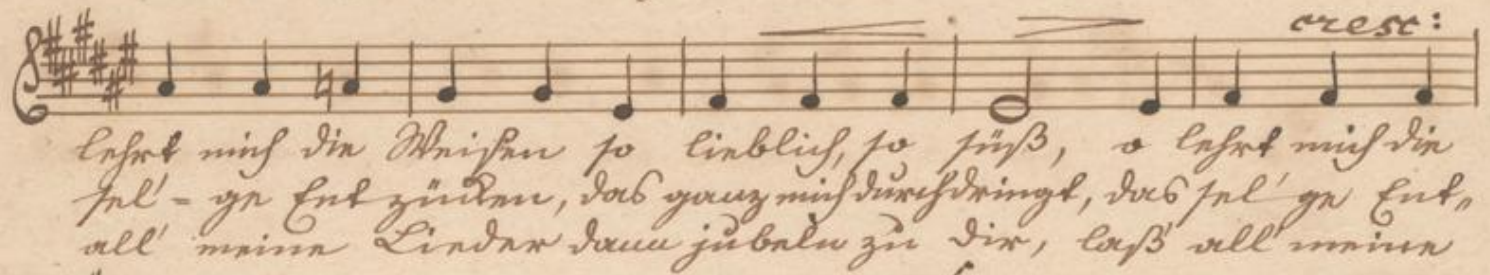 cresc:
lehrt mich die Weisen so lieblich, so süß, o lehrt mich die
sel'-ge Entzücken, das ganz mich durchdringt, das sel'ge Ent-
all' meine Lieder dann jubeln zu dir, laß all' meine